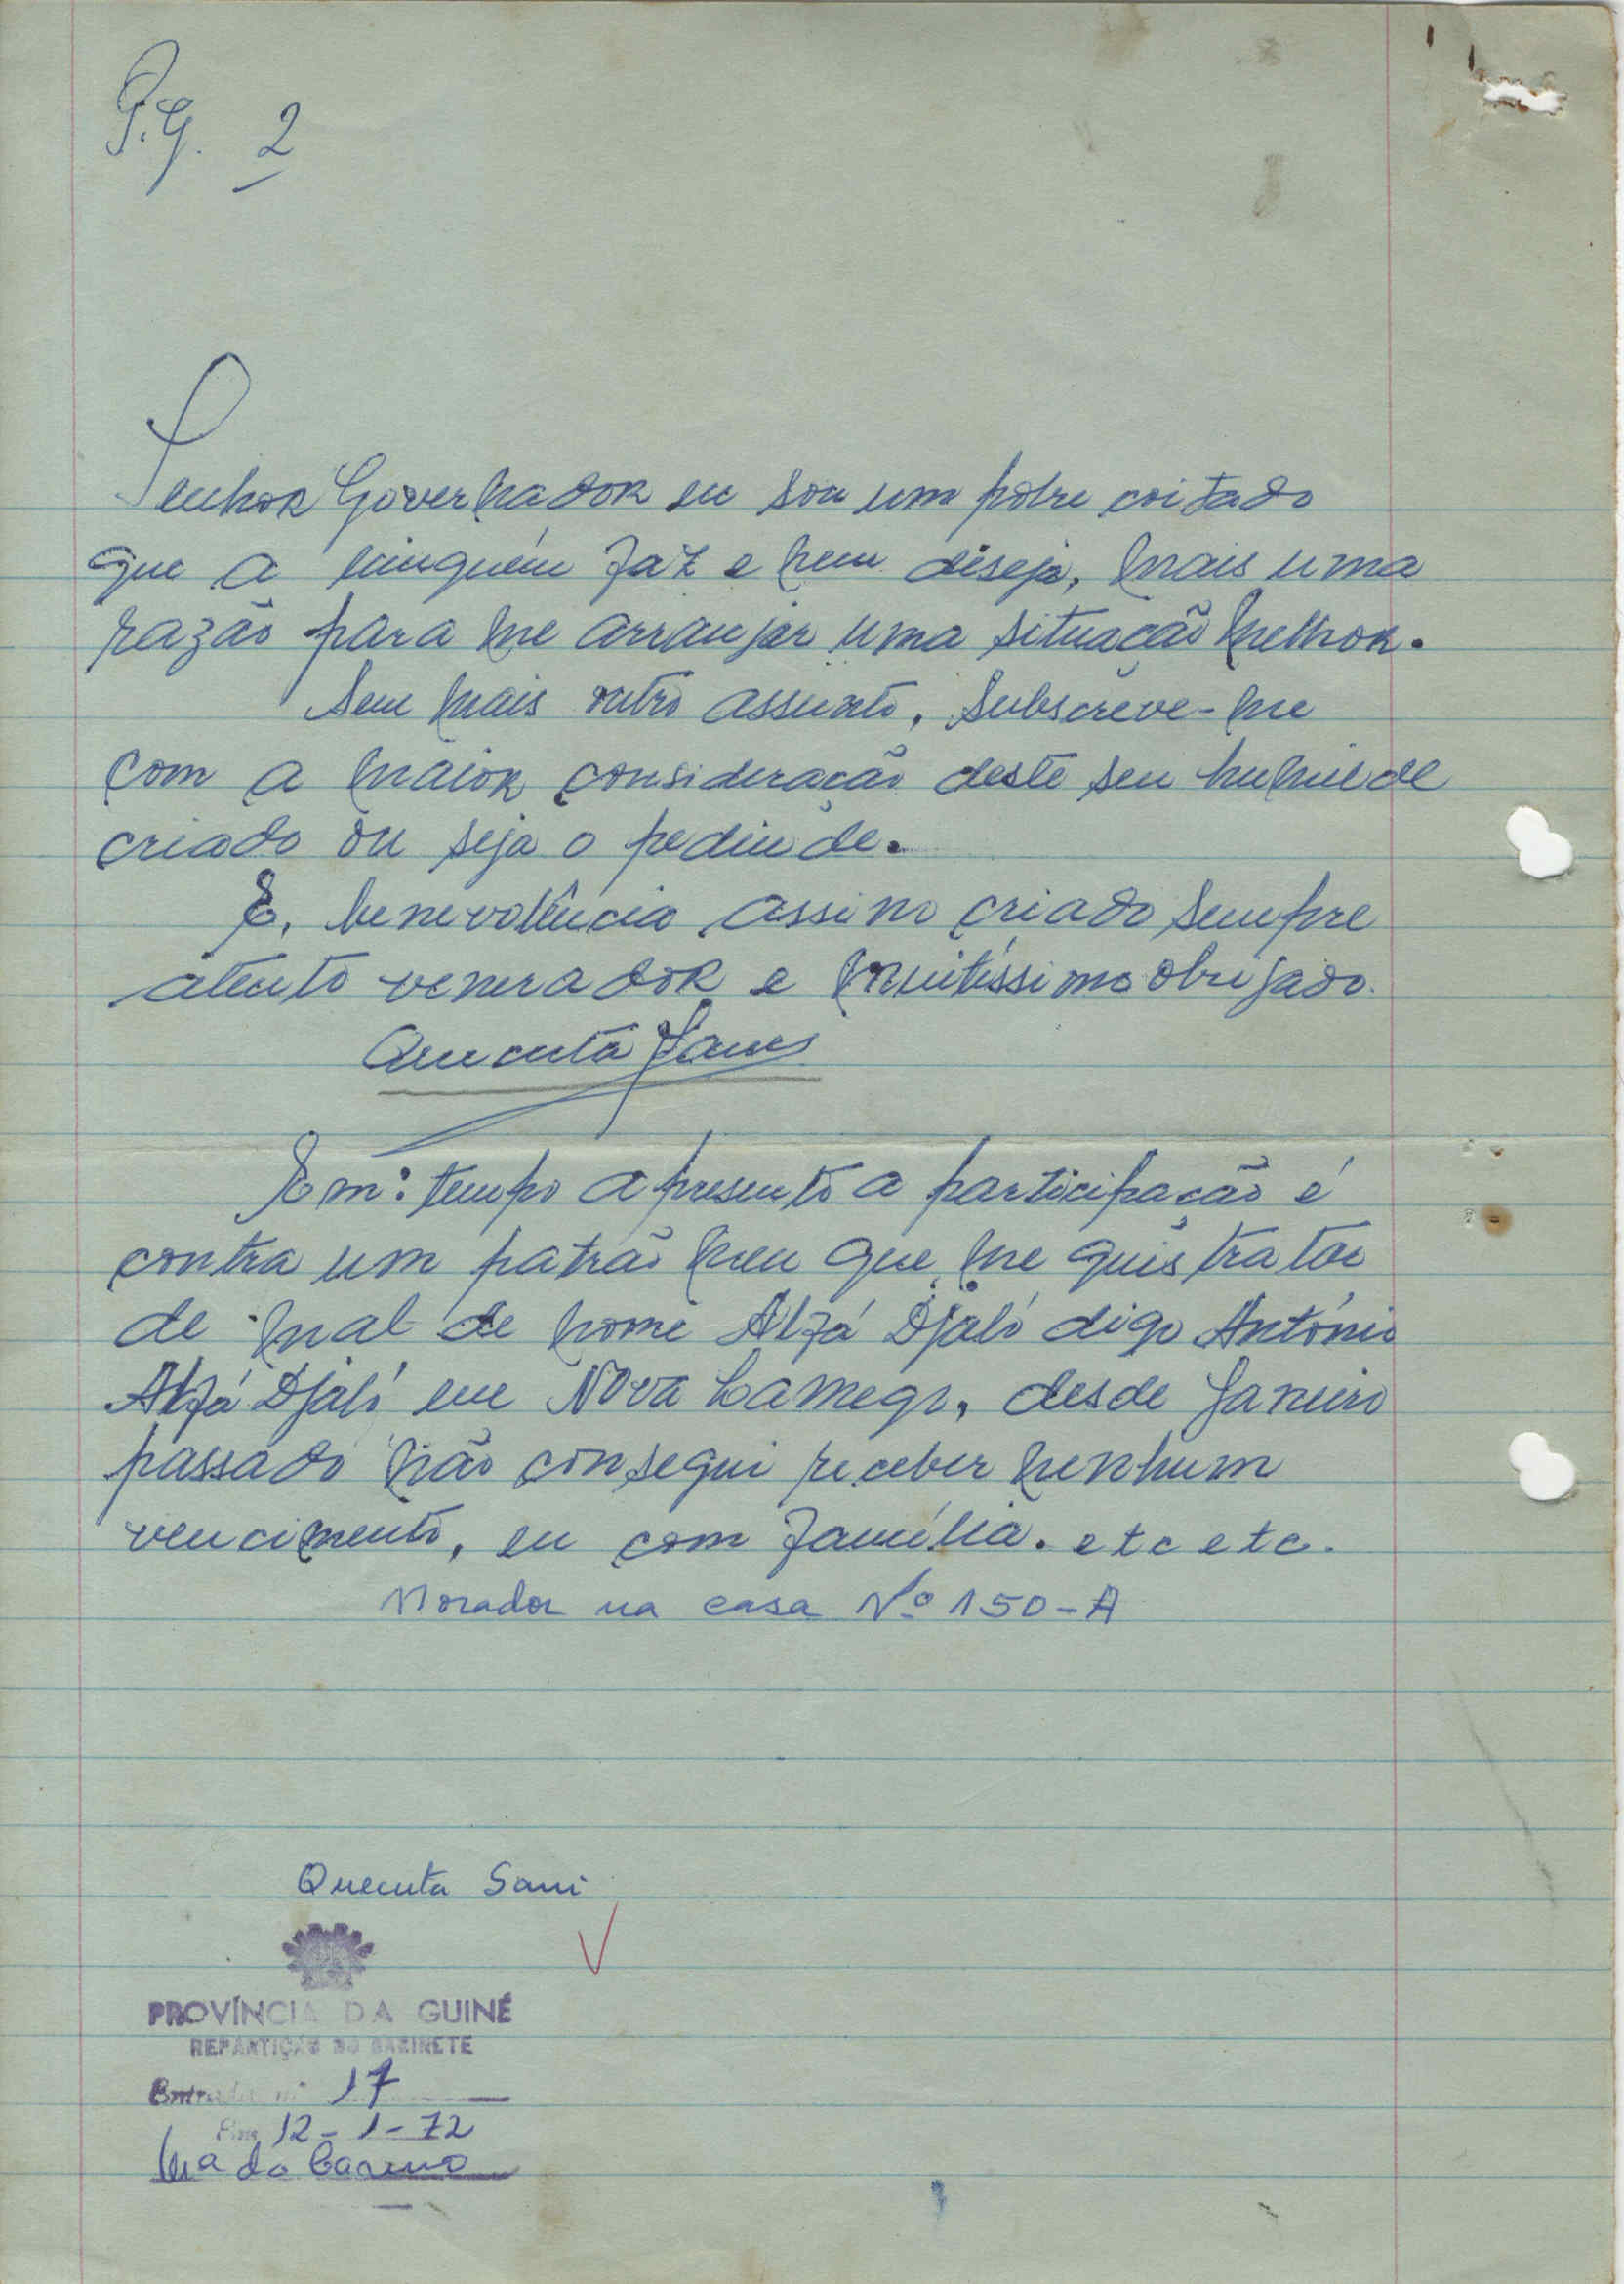 P.G. 2
Senhor Governador eu sou um pobre coitado
que a ninguém faz e nem diseja, mais uma
razão para me arranjar uma situação melhor.
Sem mais outro assunto, subscreve-me
com a maior consideração deste seu humilde
criado ou seja o pedinde.
E, benevolência assino criado sempre
atento venerador e muitíssimo obrigado.
Quecuta Sani
Em: tempo apresento a participação é
contra um patrão meu que me quis tratar
de mal de nome Alfá Djaló digo António
Alfá Djaló em Nova Lamego, desde Janeiro
passado não consegui receber nenhum
vencimento, eu com família. etc etc.
Morador na casa Nº 150-A
Quecuta Sani
PROVÍNCIA DA GUINÉ
REPARTIÇÃO DO GABINETE
Entrada nº 17
Em 12-1-72